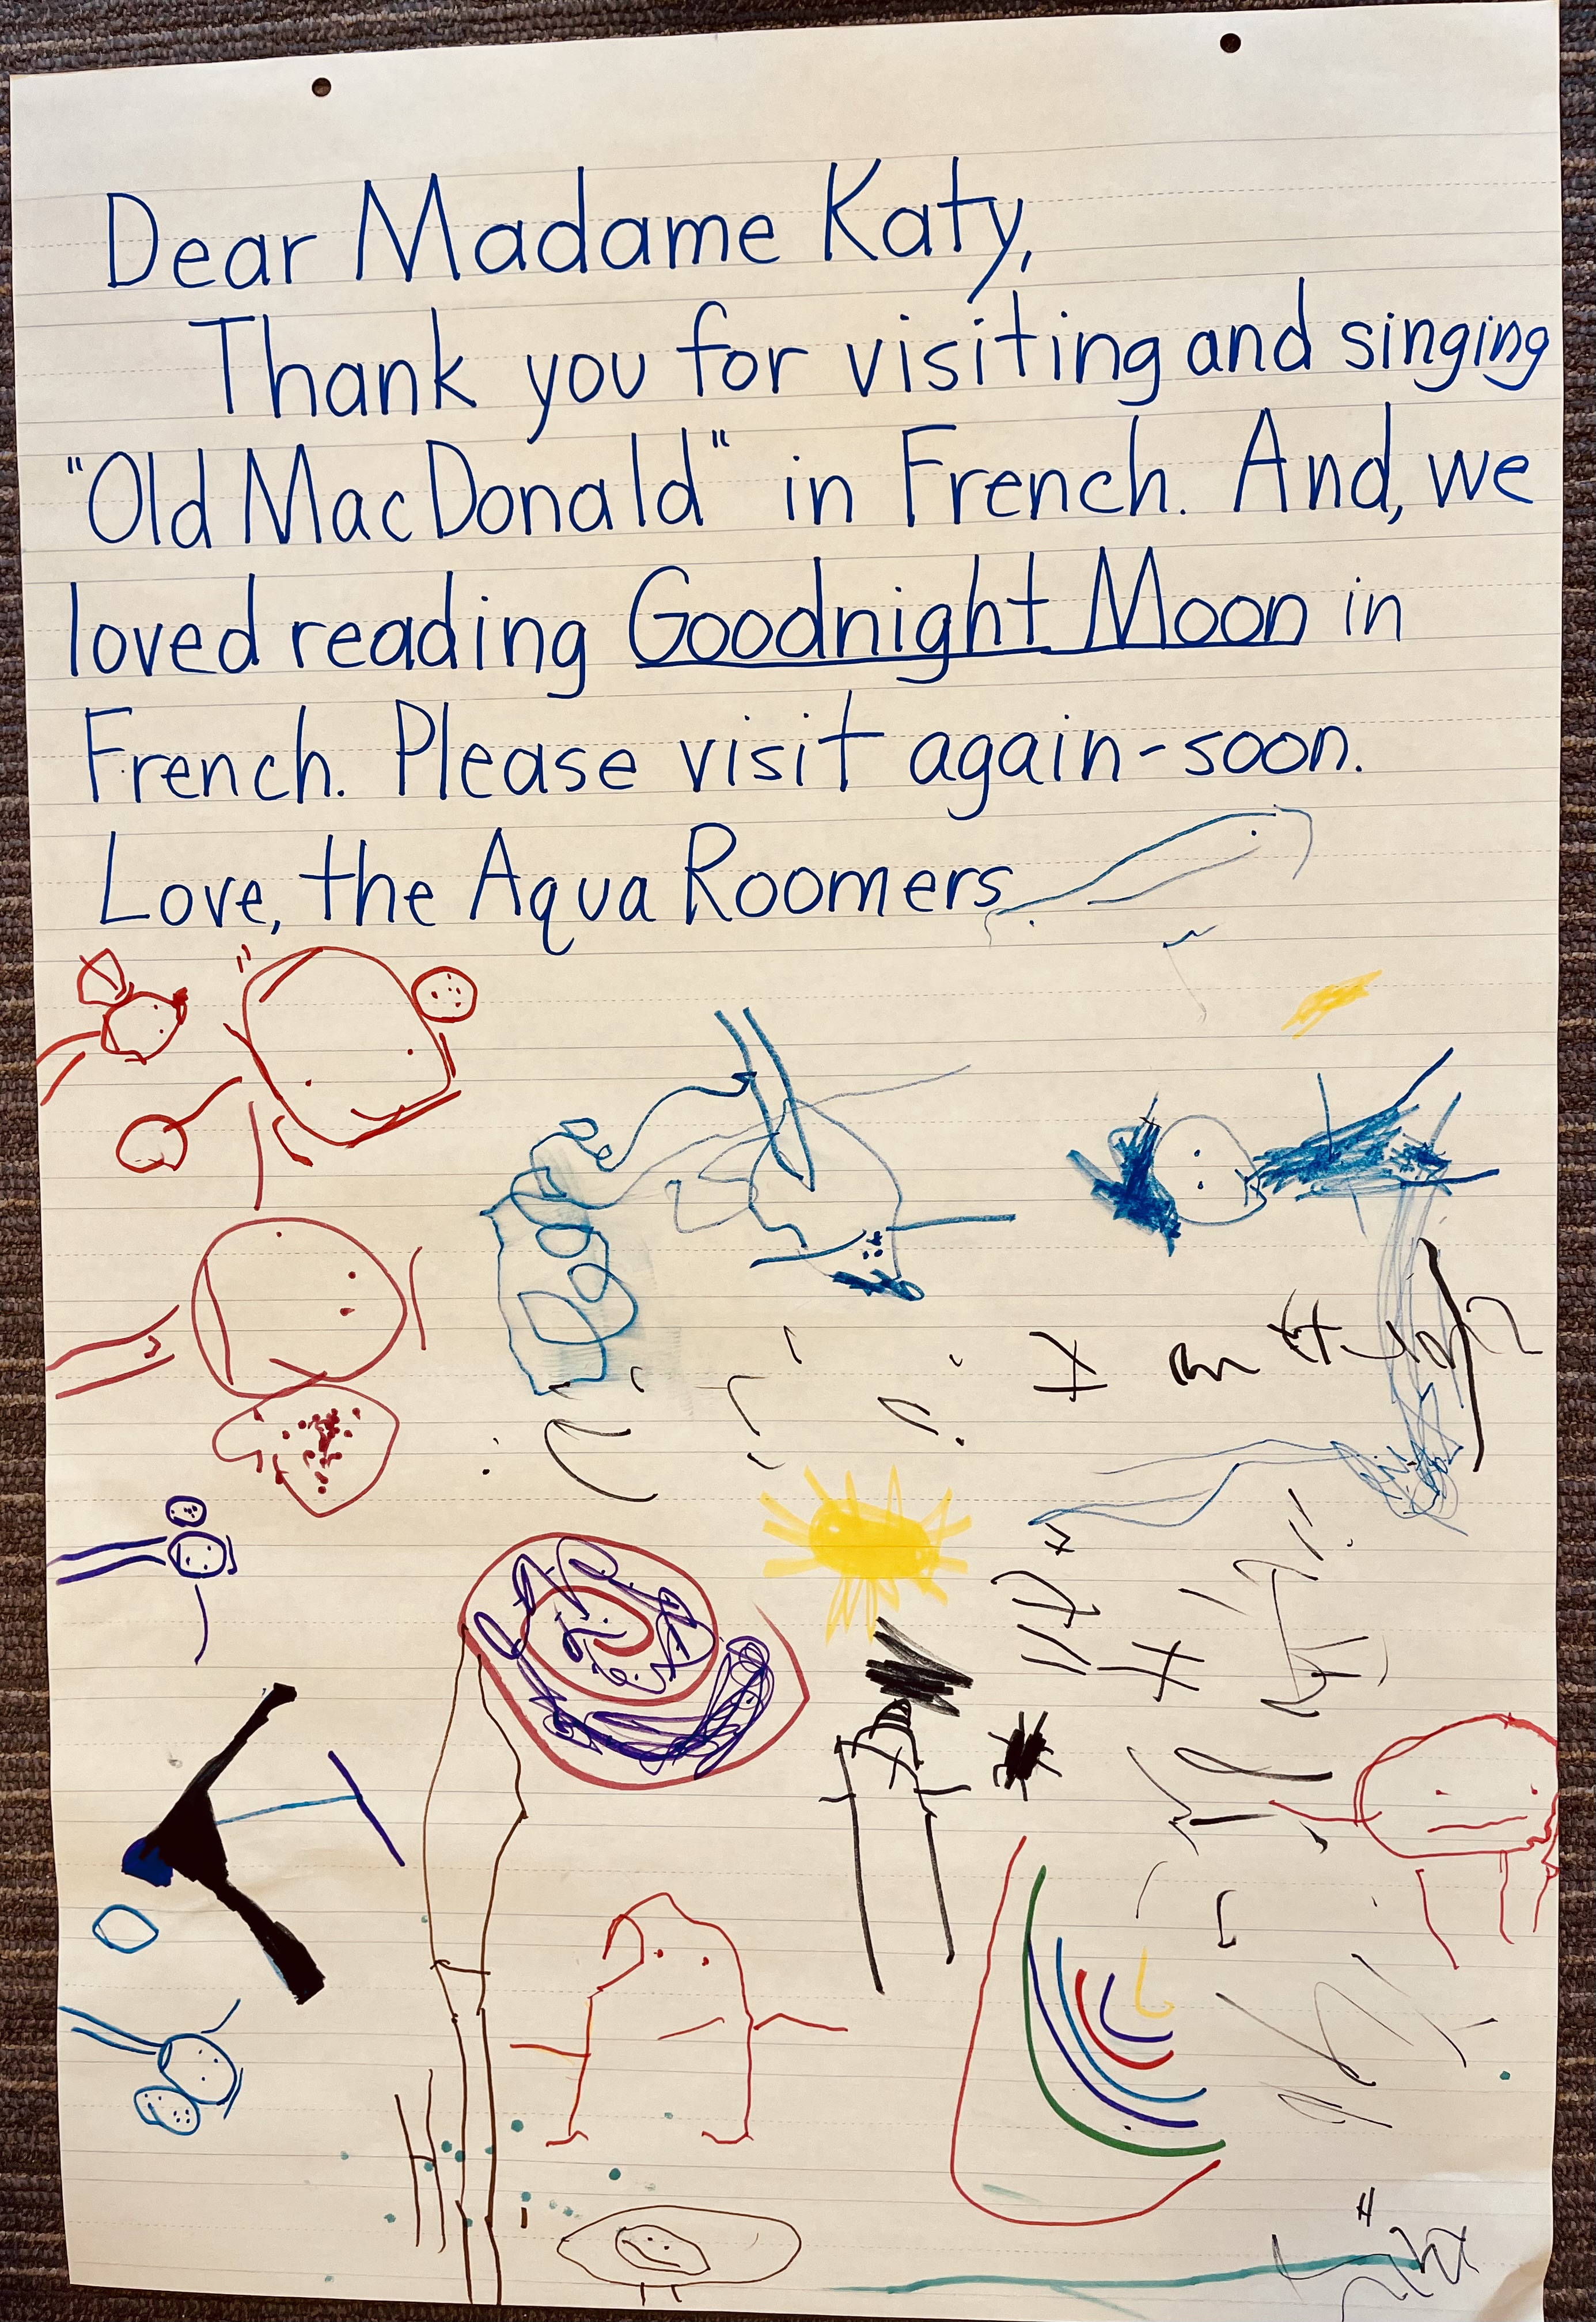 Dear Madame Katy,
Thank you for visiting and singing
"Old MacDonald" in French. And, we
loved reading Goodnight Moon in
French. Please visit again-soon.
Love, the Aqua Roomers